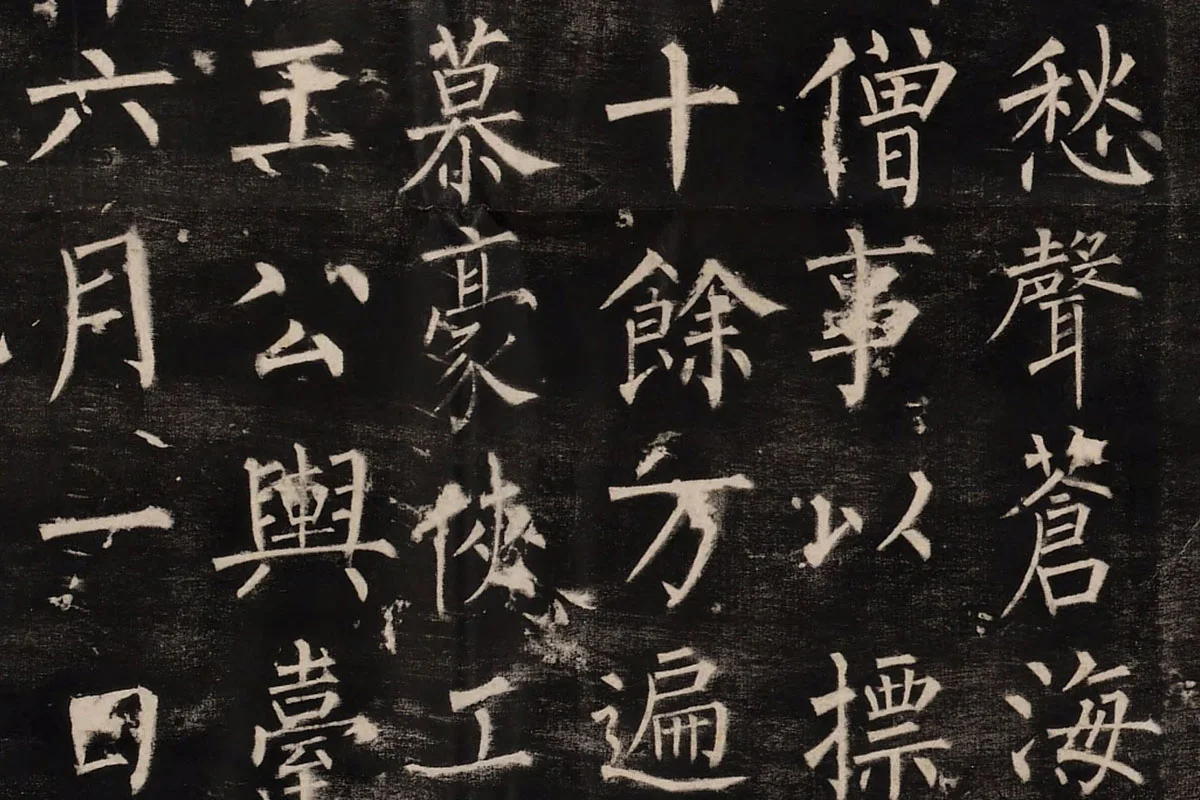 愁聲蒼海
僧事以標
十餘方遍
慕豪俠工
王公輿臺
六月一日